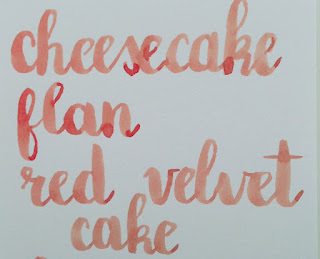 cheesecake
flan
red velvet
cake